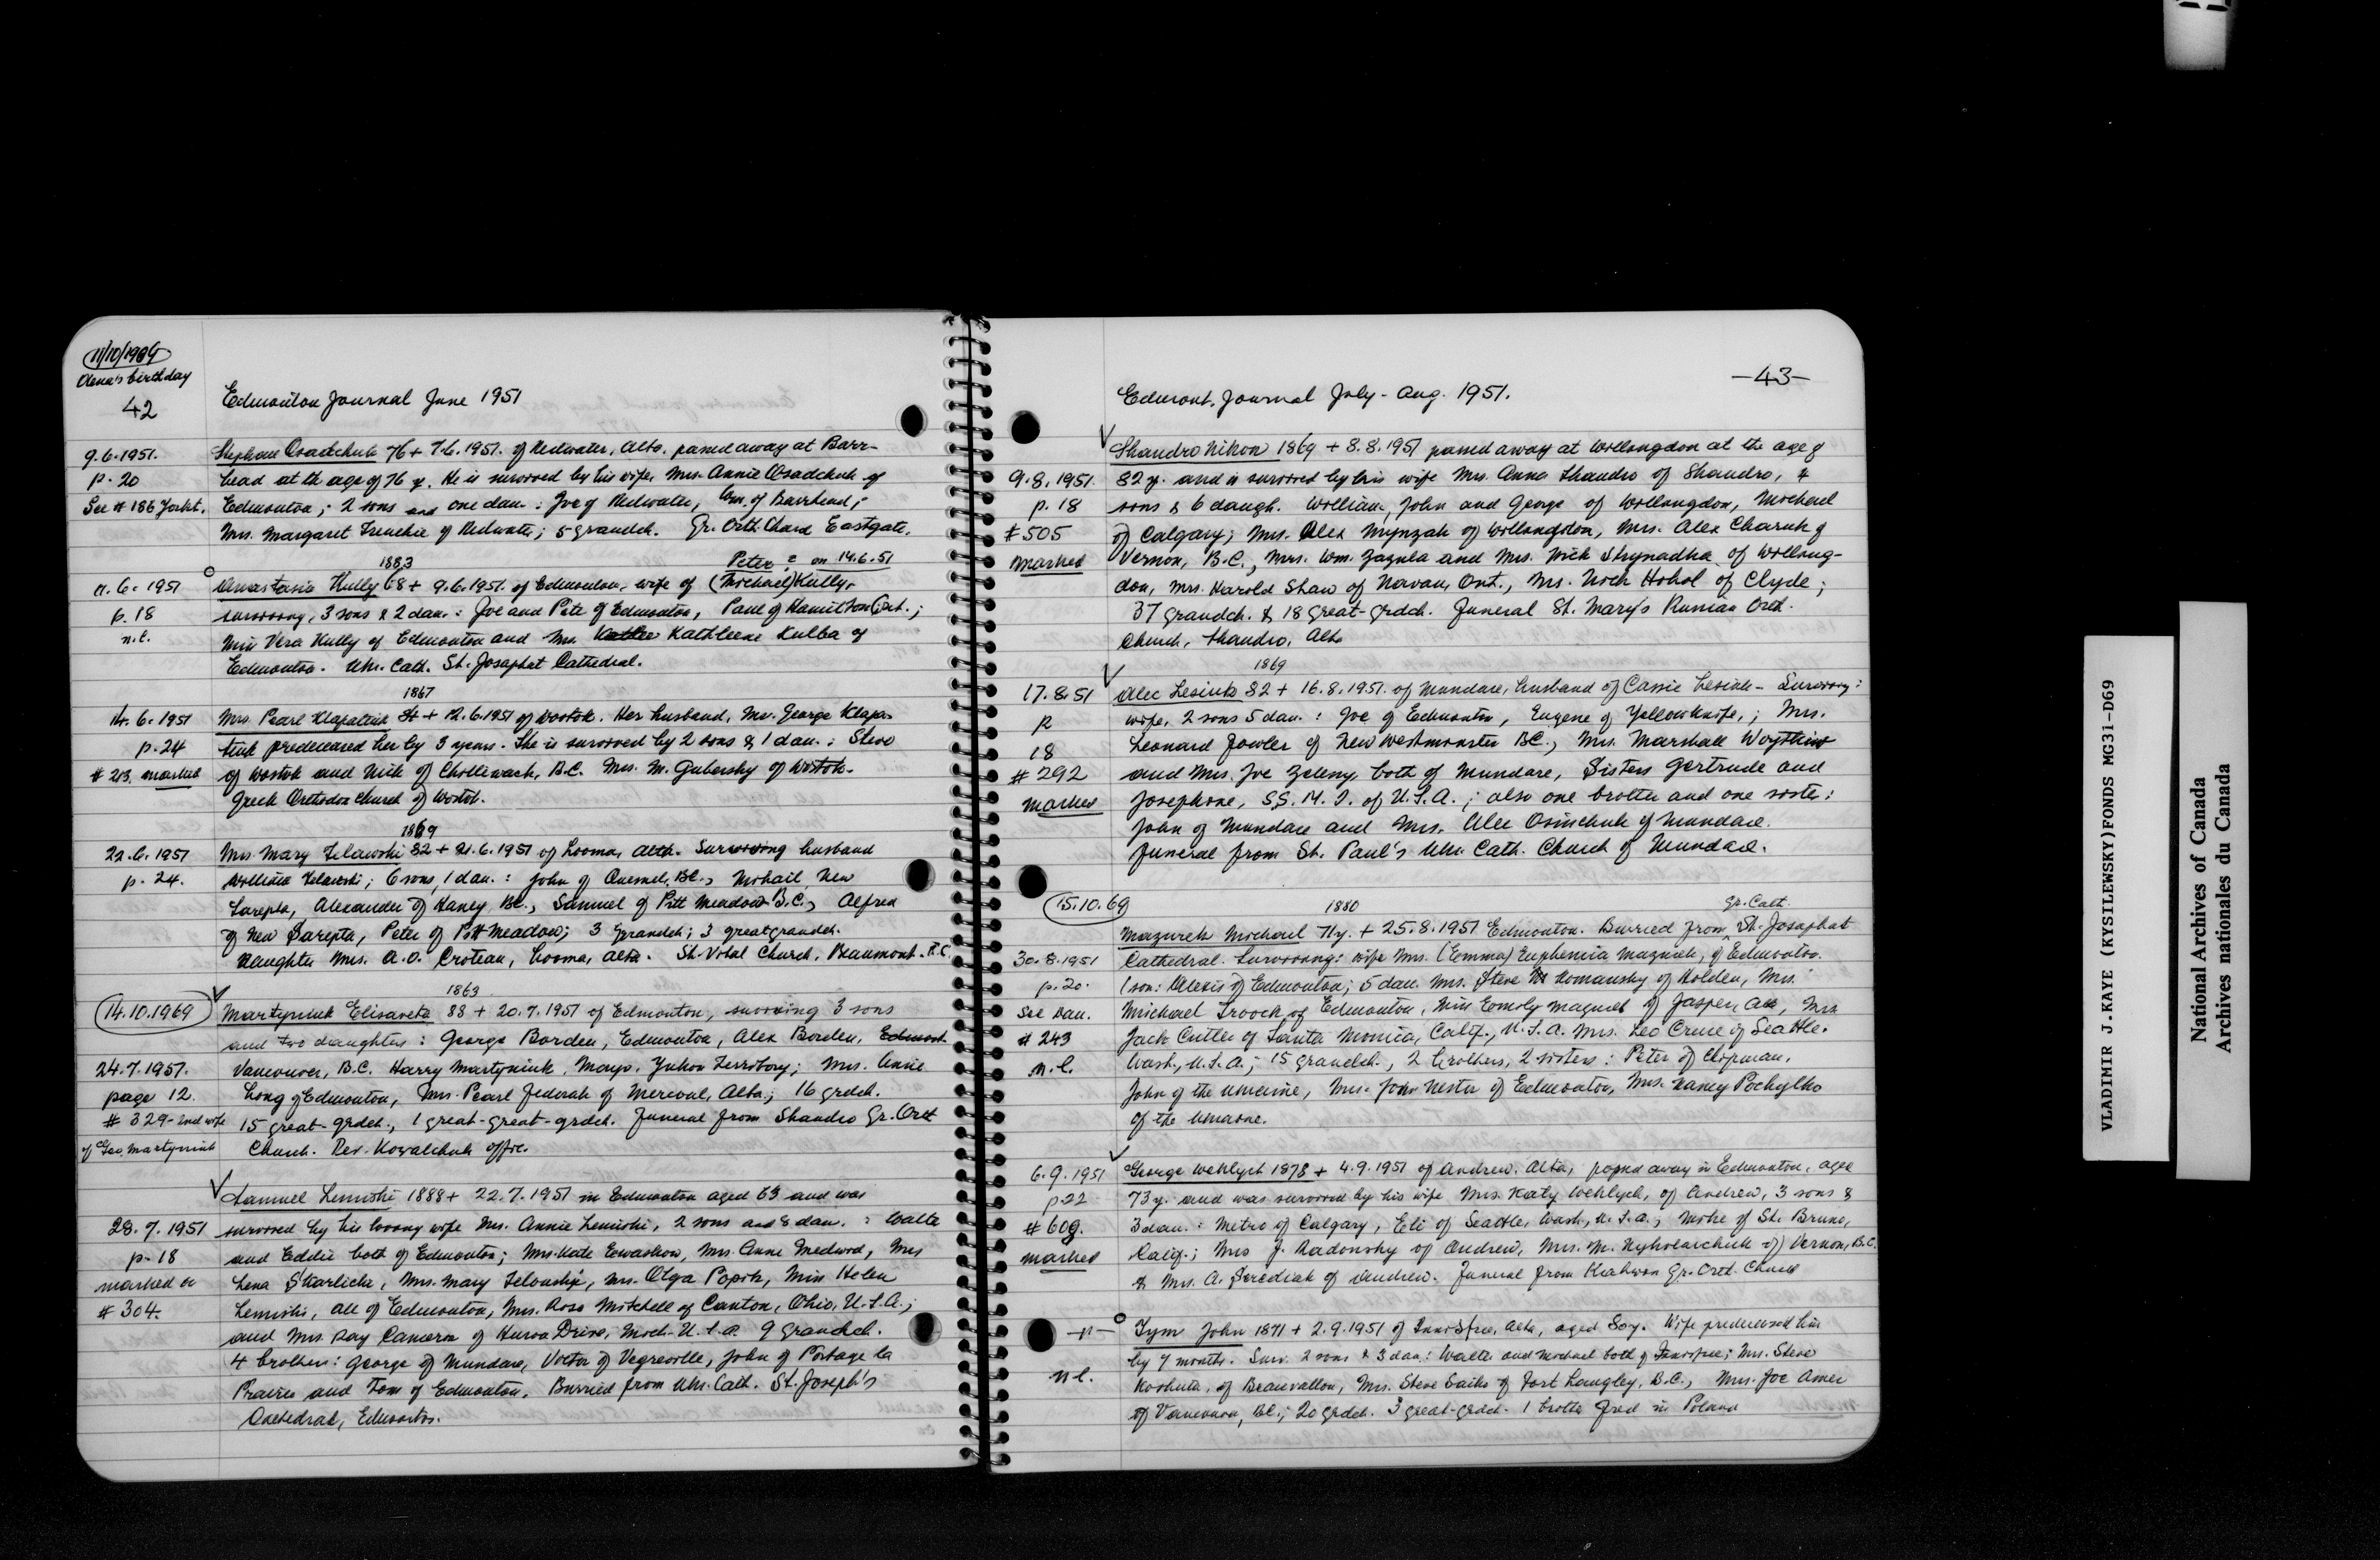 11/10/1969
Olena's birthday
42
Edmonton Journal June 1951
9.6.1951. Stephan Osadchuk 76 + 7.6.1951. of Redwater, Alta. passed away at Barr-
p. 20 head at the age of 76 y. He is survived by his wife, Mrs. Annie Osadchuk of
See # 186 Edmonton; 2 sons and one dau.: Joe of Redwater, Wm. of Barrhead;
Mrs. Margaret of Redwater; 5 grandch. Gr. Orth. Church Eastgate.
1883 Peter ? on 14.6.51
11.6.1951 Anastasia Kully 68 + 9.6.1951. of Edmonton, wife of (Michael) Kully.
p. 18 surviving, 3 sons & 2 dau.: Joe and Pete of Edmonton, Paul of Hamilton Ont.;
n.l. Miss Vera Kully of Edmonton and Mrs. Kathleene Kulba of
Edmonton. Ukr. Cath. St. Josaphat Cathedral.
1867
14.6.1951 Mrs. Pearl Klapatiuk 84 + 12.6.1951 of Wostok. Her husband, Mr. George Klapa-
p. 24 tiuk predeceased her by 3 years. She is survived by 2 sons & 1 dau.: Steve
# 213 marked of Wostok and Nick of Chilliwack, B.C. Mrs. M. Gubersky of Wostok.
Greek Orthodox Church of Wostok.
1869
22.6.1951 Mrs. Mary Zelawski 82 + 21.6.1951 of Looma, Alta. Surviving husband
p. 24. William Zelawski; 6 sons, 1 dau.: John of Quesnel, BC., Mihail, New
Sarepta, Alexander of Haney, BC., Samuel of Pitt Meadow B.C., Alfred
of New Sarepta, Peter of Pitt Meadow; 3 grandch; 3 greatgrandch.
Daughter Mrs. A.O. Croteau, Looma, Alta. St. Vital Church, Beaumont. R.C.
1863
14.10.1969 Martyniuk Elisaveta 88 + 20.7.1951 of Edmonton, surviving 3 sons
and two daughters: George Borden, Edmonton, Alex Borden, Edmont.
24.7.1951. Vancouver, B.C. Harry Martyniuk, Mayo, Yukon Territory; Mrs. Annie
page 12. Long of Edmonton, Mrs. Pearl Fedorak of Mercoal, Alta.; 16 grdch.
# 329 - 2nd wife 15 great-grdch., 1 great-great-grdch. Funeral from Shandro Gr. Orth
of Geo. Martyniuk Church. Rev. Kowalchuk offic.
Samuel Lemiski 1888 + 22.7.1951 in Edmonton aged 63 and was
28.7.1951 survived by his loving wife Mrs. Annie Lemiski, 2 sons and 8 dau.: Walte
p. 18 and Eddie both of Edmonton; Mrs. Kate Ewashow, Mrs. Anne Medwid, Mrs
marked in Lena Skarlicki, Mrs. Mary, Mrs. Olga Popik, Miss Helen
# 304. Lemiski, all of Edmonton, Mrs. Rose Mitchell of Canton, Ohio, U.S.A.;
and Mrs. Ray Cameron of Huron Drive, Mich. U.S.A. 9 grandch.
4 brothers: George of Mundare, Victor of Vegreville, John of Portage la
Prairie and Tom of Edmonton. Burried from Ukr. Cath. St. Joseph's
Cathedral, Edmonton.
-43-
Edmont. Journal July - Aug. 1951.
Shandro Nikon 1869 + 8.8.1951 passed away at Willongdon at the age of
9.8.1951. 82 y. and is survived by his wife Mrs. Anna Shandro of Shandro, 4
p. 18 sons & 6 daugh. William, John and George of Willongdon, Michael
# 505 of Calgary; Mrs. Alex of Willongdon, Mrs. Alex Charuk of
marked Vernon, B.C., Mrs. Wm. Zazula and Mrs. Nick Strynadka of Willong-
don, Mrs. Harold Shaw of Navan, Ont., Mrs. Nick Hohol of Clyde;
37 grandch. & 18 great-grdch. Funeral St. Mary's Russian Orth.
Church, Shandro, Alta
1869
17.8.51 Alec Lesiuk 82 + 16.8.1951. of Mundare, husband of Cassie Lesiuk - Surviving:
p wife, 2 sons 5 dau.: Joe of Edmonton, Eugene of Yellowknife,; Mrs.
18 Leonard Fowler of New Westminster BC., Mrs. Marshall
# 292 and Mrs. Joe Zeleny, both of Mundare, Sisters Gertrude and
marked Josephine, S.S.M.I. of U.S.A.; also one brother and one sister:
John of Mundare and Mrs. Alec Osinchuk of Mundare.
Funeral from St. Paul's Ukr. Cath. Church of Mundare.
15.10.69 1880 Gr. Cath.
Mazurek Michael 71y. + 25.8.1951 Edmonton. Burried from St. Josaphat
30.8.1951 Cathedral. Surviving: wife Mrs. (Emma) Euphemia Mazurek, of Edmonton.
p. 20. 1 son: Alexis of Edmonton; 5 dau. Mrs. Steve Romansky of Holden, Mrs.
See Van. Michael of Edmonton, Miss Emily Mazurek of Jasper, Alta, Mrs
# 243 Jack Cutler of Santa Monica, Calif., U.S.A. Mrs. Leo Cruse of Seattle.
n.l. Wash., U.S.A.; 15 grandch., 2 brothers, 2 sisters: Peter of Chipman,
John of the Ukraine, Mrs. John Nester of Edmonton, Mrs. Nancy Pochylko
of the Ukraine.
6.9.1951 George Wehlych 1878 + 4.9.1951 of Andrew, Alta, passed away in Edmonton, age
p. 22 73 y. and was survived by his wife Mrs. Katy Wehlych, of Andrew, 3 sons &
# 609. 3 dau.: Metro of Calgary, Eli of Seattle, Wash., U.S.A.; Mike of St. Bruno,
marked Calif.; Mrs J. Radonsky of Andrew, Mrs. M. of Vernon, B.C.
& Mrs. A. Serediak of Andrew. Funeral from Kiahwon Gr. Orth. Church
-"- Tym John 1871 + 2.9.1951 of Innisfree, Alta, aged 80y. Wife predeceased him
by 7 months. Surv. 2 sons & 3 dau.: Walter and Michael both of Innisfree; Mrs. Steve
n.l. Koshuta, of Beauvallon, Mrs. Steve Saiko of Fort Langley, B.C., Mrs. Joe Amer
of Vancouver, BC.; 20 grdch. 3 great-grdch. 1 brother Fred in Poland
VLADIMIR J.KAYE (KYSILEWSKY)FONDS MG31-D69
National Archives of Canada
Archives nationales du Canada